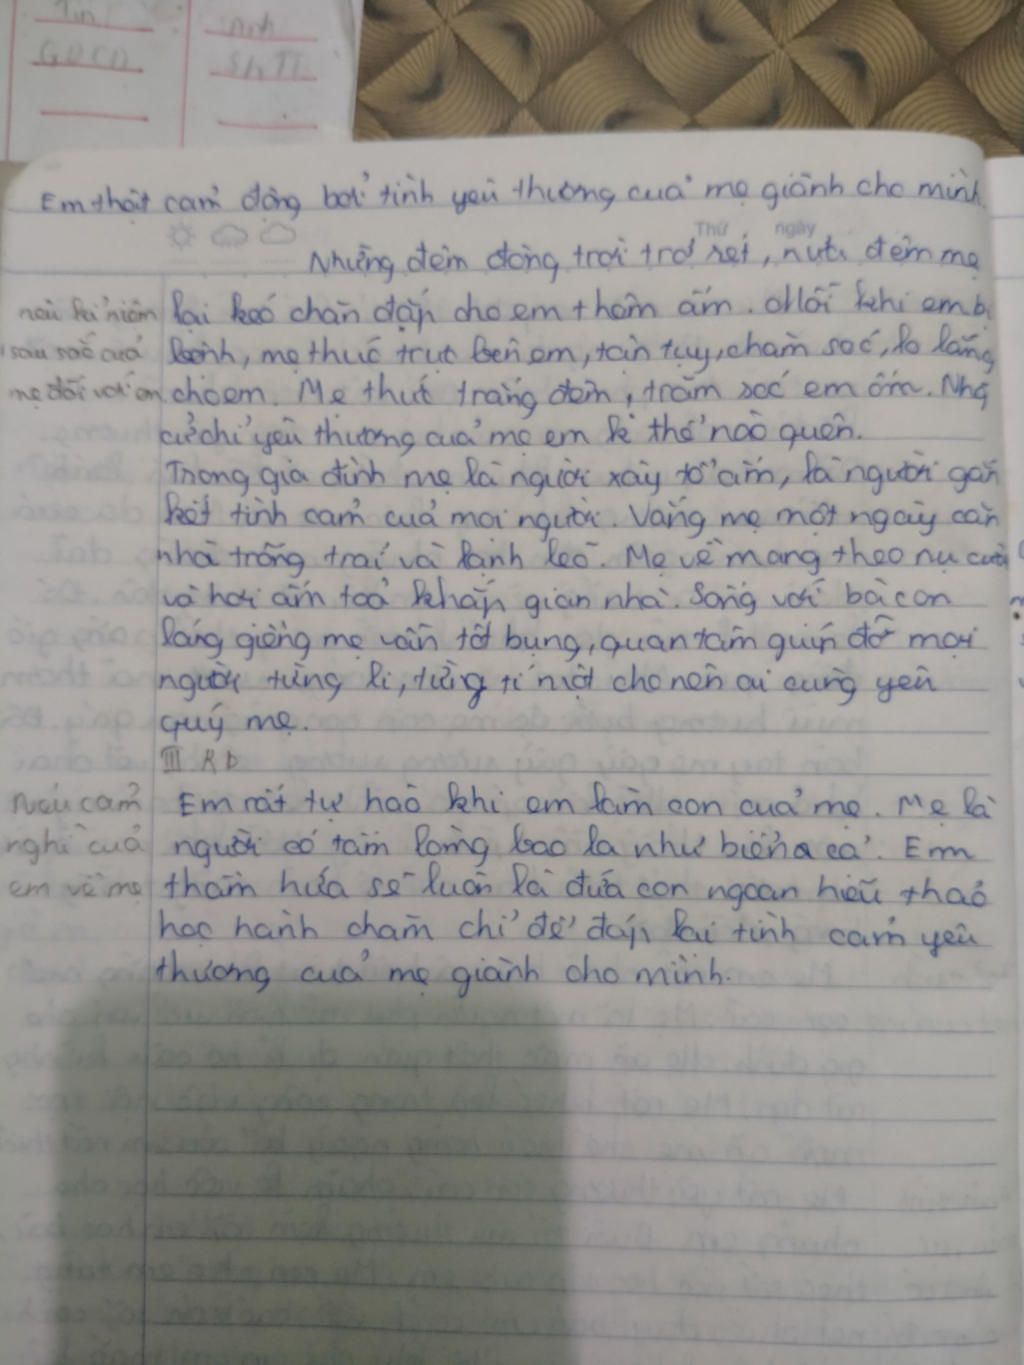 Tin
Anh
GDCD
SHTT
Em thật cảm động bởi tình yêu thương của mẹ giành cho mình.
Thứ ngày
Những đêm đông trời trở rét, nửa đêm mẹ
nêu kỉ niệm lại kéo chăn đắp cho em thêm ấm. Mỗi khi em bị
sâu sắc của bệnh, mẹ thức trực bên em, tận tụy, chăm sóc, lo lắng
mẹ đối với em cho em. Mẹ thức trắng đêm, trăm sóc em ốm. Nhg
cử chỉ yêu thương của mẹ em k thể nào quên.
Trong gia đình mẹ là người xây tổ ấm, là người gắn
kết tình cảm của mọi người. Vắng mẹ một ngày căn
nhà trống trải và lạnh lẽo. Mẹ về mang theo nụ cười
và hơi ấm toả khắp gian nhà. Sống với bà con
láng giềng mẹ vẫn tốt bụng, quan tâm giúp đỡ mọi
người từng li, từng tí một cho nên ai cũng yêu
quý mẹ.
III KB
Nêu cảm Em rất tự hào khi em làm con của mẹ. Mẹ là
nghĩ của người có tấm lòng bao la như biển cả. Em
em về mẹ thầm hứa sẽ luôn là đứa con ngoan hiếu thảo
học hành chăm chỉ để đáp lại tình cảm yêu
thương của mẹ giành cho mình.